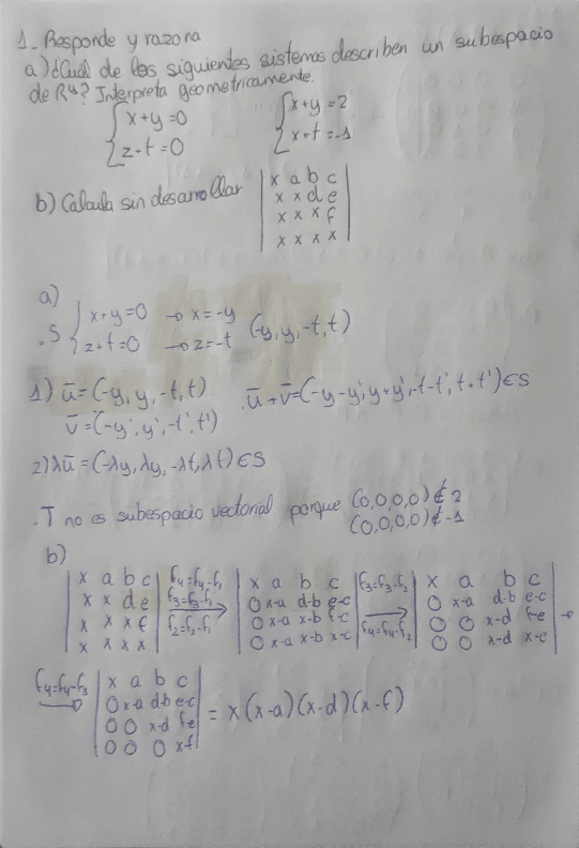 1- Responde y razona
a) ¿Cuál de los siguientes sistemas describen un subespacio
de R⁴? Interpreta geometricamente.
{ x+y=0 { x+y=2
{ z+t=0 { x+t=-1
b) Calcula sin desarrollar | x a b c |
| x x d e |
| x x x f |
| x x x x |
a)
.S { x+y=0 → x=-y
{ z+t=0 → z=-t (-y, y, -t, t)
1) ū=(-y, y, -t, t) . ū+v̄=(-y-y', y+y', -t-t', t+t')∈S
v̄=(-y', y', -t', t')
2) λū=(-λy, λy, -λt, λt)∈S
.T no es subespacio vectorial porque (0,0,0,0)∉2
(0,0,0,0)∉-1
b)
| x a b c | f₄=f₄-f₁ | x a b c | f₃=f₃-f₂ | x a b c |
| x x d e | f₃=f₃-f₁ → | 0 x-a d-b e-c | → | 0 x-a d-b e-c |
| x x x f | f₂=f₂-f₁ | 0 x-a x-b f-c | f₄=f₄-f₂ | 0 0 x-d f-e | →
| x x x x | | 0 x-a x-b x-c | | 0 0 x-d x-e |
f₄=f₄-f₃ → | x a b c |
| 0 x-a d-b e-c |
| 0 0 x-d f-e | = x(x-a)(x-d)(x-f)
| 0 0 0 x-f |